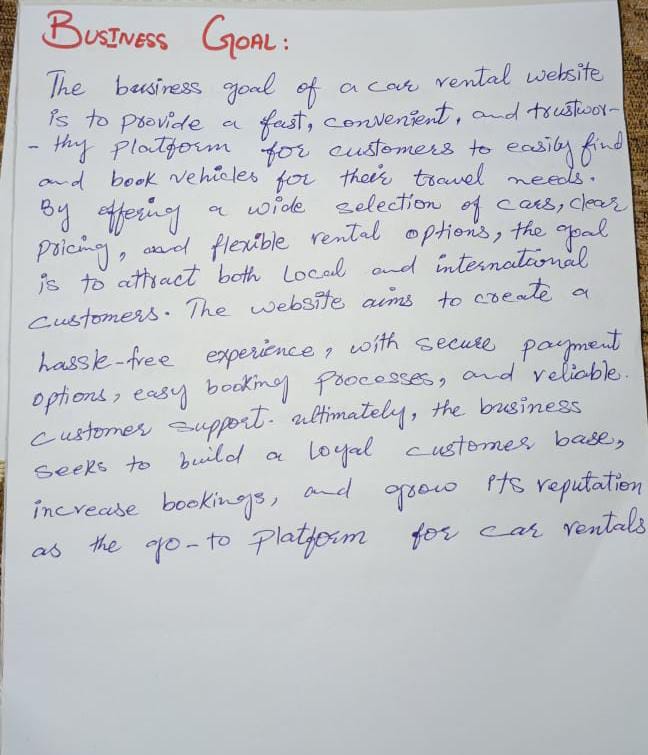 BUSINESS GOAL:
The business goal of a car rental website
is to provide a fast, convenient, and trustwor-
- thy platform for customers to easily find
and book vehicles for their travel needs.
By offering a wide selection of cars, clear
pricing, and flexible rental options, the goal
is to attract both local and international
customers. The website aims to create a
hassle-free experience, with secure payment
options, easy booking processes, and reliable.
customer support. ultimately, the business
seeks to build a loyal customer base,
increase bookings, and grow its reputation
as the go-to platform for car rentals